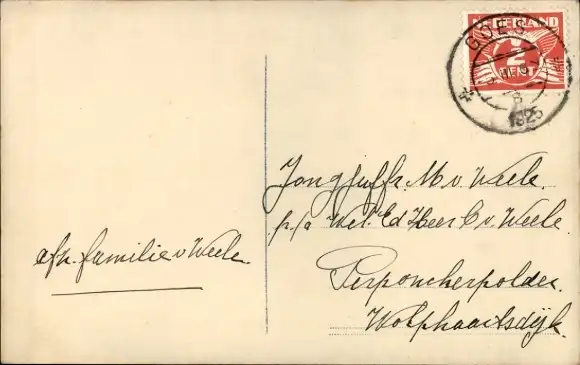 NEDERLAND
2
CENT
GOES
1925
Jongjuffr. M. v. Weele.
p/a Wel. Ed Heer C. v. Weele.
Perponcherpolder.
Wolphaartsdijk.
afz. familie v Weele.